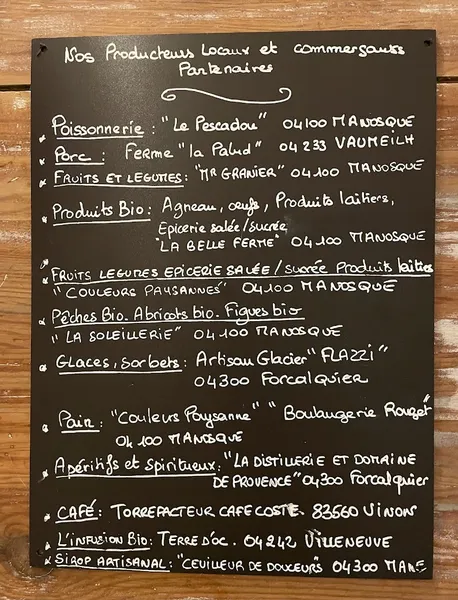 Nos Producteurs Locaux et commerçants
Partenaires
* Poissonnerie : "Le Pescadou" 04100 MANOSQUE
* Porc : Ferme "la Palud" 04 233 VAUMEILH
* FRUITS ET LEGUMES : "MR GRANIER" 04100 MANOSQUE
* Produits Bio : Agneau, œufs, Produits laitiers,
Epicerie salée/sucrée
"LA BELLE FERME" 04100 MANOSQUE
* FRUITS LEGUMES EPICERIE SALÉE / sucrée Produits laitiers
"COULEURS PAYSANNES" 04100 MANOSQUE
* Pêches Bio. Abricots bio. Figues bio
"LA SOLEILLERIE" 04100 MANOSQUE
* Glaces, Sorbets : Artisan Glacier "FLAZZI"
04300 Forcalquier
* Pain : "Couleurs Paysanne" "Boulangerie Rouget"
04100 MANOSQUE
* Apéritifs et Spiritueux : "LA DISTILLERIE ET DOMAINE
DE PROVENCE" 04300 Forcalquier
* CAFÉ : TORREFACTEUR CAFE COSTE. 83560 VINON
* L'INFUSION Bio : TERRE D'OC. 04242 VILLENEUVE
* SIROP ARTISANAL : "CEUILLEUR DE DOUCEURS" 04300 MANE